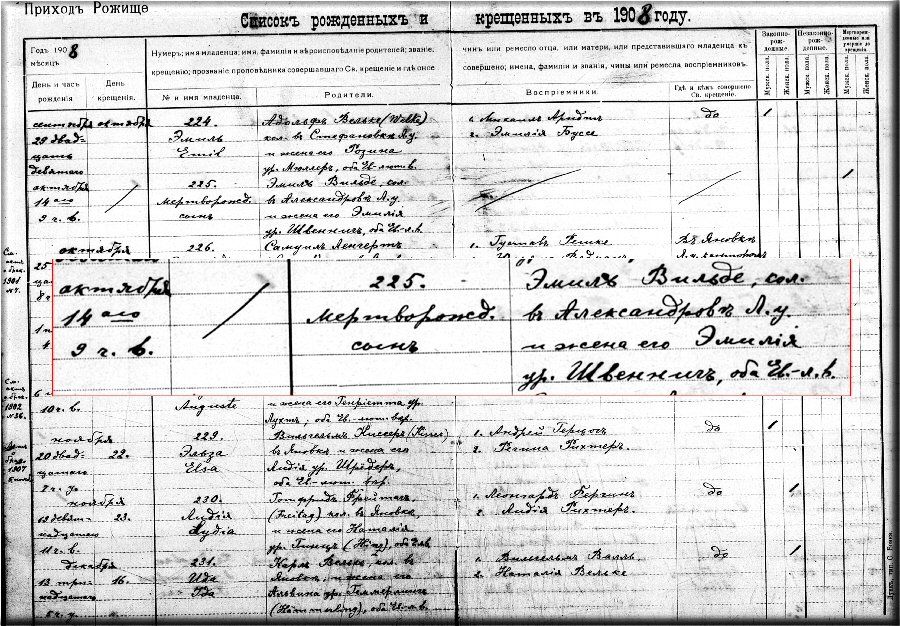 Приходъ Рожище
Списокъ рожденныхъ и крещенныхъ въ 1908 году.
Годъ 1908
мѣсяцъ
День и часъ рожденія
День крещенія.
Нумеръ; имя младенца; имя, фамилія и вѣроисповѣданіе родителей; званіе;
крещенію; прозваніе проповѣдника совершавшаго Св. крещеніе и гдѣ оное
№ и имя младенца.
Родители.
чинъ или ремесло отца, или матери, или представившаго младенца къ
совершено; имена, фамиліи и званія, чины или ремесла воспріемниковъ.
Воспріемники.
Гдѣ и кѣмъ совершено
Св. крещеніе.
Законно-рожденные.
Незаконно-рожденные.
Мужск. пола.
Женск. пола.
Мужск. пола.
Женск. пола.
Мужск. пола.
Женск. пола.
сентября октября
29 двад-
цать
девятаго
224.
Эмиль
Emil
Адольфъ Вельке (Welke)
кол. въ Стефановкѣ Л.у.
и жена его Розина
ур. Мюллеръ, оба Ев-лют в.
1. Михаилъ Арндтъ
2. Эмилія Буссе
до
1
октября
14 аго
9 ч. в.
225.
Мертворожд.
сынъ
Эмилъ Вильде, кол.
въ Александровъ Л.у
и жена его Эмилія
ур. Швенничъ, оба Ев.-л. в.
1
октября
226.
Самуилъ Ленгертъ
1. Густавъ Решке
Въ Яновкѣ
октября
14 аго
9 ч. в.
225.
Мертворожд.
сынъ
Эмилъ Вильде, кол.
въ Александровъ Л.у
и жена его Эмилія
ур. Швенничъ, оба Ев.-л. в.
10 ч. в.
Auguste
и жена его Генріетта ур.
Лухтъ, оба Ев.-лют вѣр.
ноября
20 двад-
цатаго
22.
229.
Эльза
Elsa
въ Яновкѣ и жена его
Лидія ур. Шрёдеръ,
оба Ев.-лют. вѣр.
1. Андрей Герцогъ
2. Регина Рихтеръ.
до
1
ноября
19 девят-
надцатаго
11 ч. в.
23.
230.
Лидія
Lydia
Готфридъ Фрейтагъ
(Freitag) кол. въ Яновкѣ
и жена его Наталія
1. Леонгардъ Гергинъ
2. Лидія Рихтеръ.
до
1
декабря
13 три-
надцатаго
16.
231.
Ида
Ida
Карлъ Вельке, кол. въ
Яновкѣ, и жена его
Альвина ур. Геммерлингъ
(Hämmerling), оба Ев-л. в.
1. Вильгельмъ Валль
2. Наталія Вельке
до
1